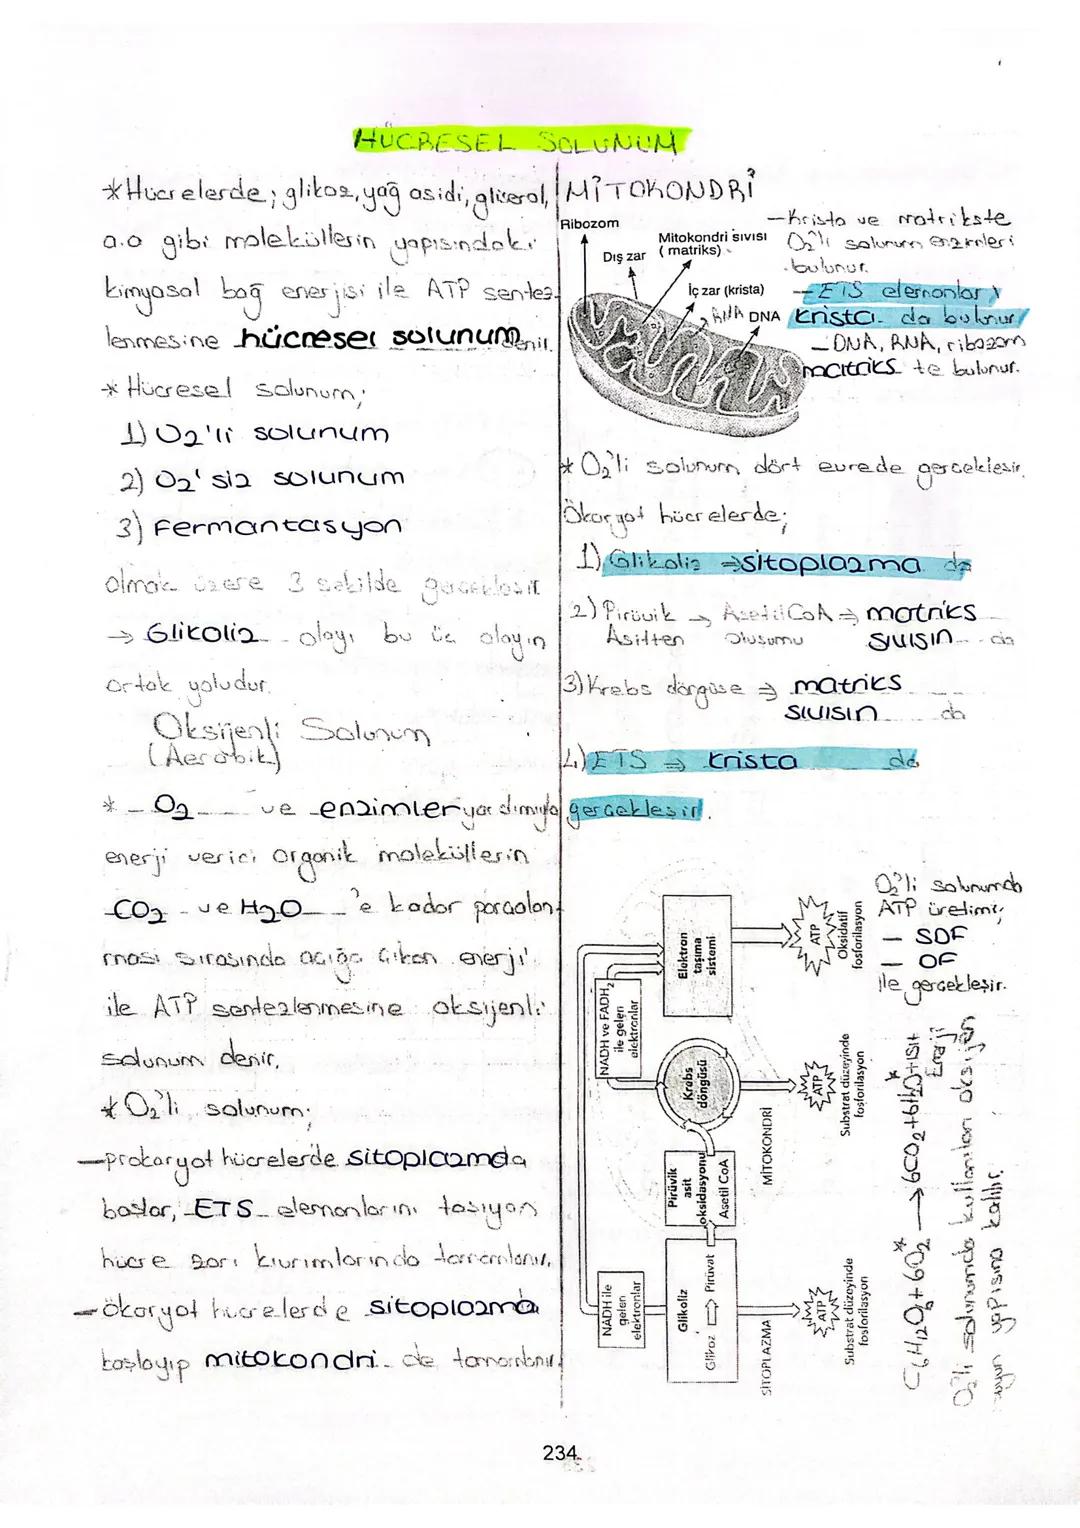 HÜCRESEL SOLUNUM
*Hücrelerde; glikoz, yağ asidi, gliserol,
a.a gibi moleküllerin yapısındaki
kimyasal bağ enerjisi ile ATP sentez-
lenmesine hücresel solunum denir.
* Hücresel solunum;
1) O2'li solunum
2) O2'siz solunum
3) Fermantasyon
olmak üzere 3 şekilde gerçekleşir.
→ Glikoliz olayı bu üç olayın
ortak yoludur.
Oksijenli Solunum
(Aerobik)
* O2 ve enzimler yardımıyla
enerji verici organik moleküllerin
CO2 ve H2O 'e kadar parçalan-
ması sırasında açığa çıkan enerji
ile ATP sentezlenmesine oksijenli
solunum denir.
* O2'li solunum;
- prokaryot hücrelerde sitoplazmada
başlar, ETS elemanlarını taşıyan
hücre zarı kıvrımlarında tamamlanır.
- Ökaryot hücrelerde sitoplazma
başlayıp mitokondri de tamamlanır.
MİTOKONDRİ
Ribozom
Dış zar
Mitokondri sıvısı
(matriks)
İç zar (krista)
RNA
DNA
- Krista ve matrikste
O2'li solunum enzimleri
bulunur.
- ETS elemanları
krista da bulunur
- DNA, RNA, ribozom
matriks te bulunur.
* O2'li solunum dört evrede gerçekleşir.
Ökaryot hücrelerde;
1) Glikoliz → sitoplazma da
2) Pirüvik → Asetil CoA → matriks
Asitten Oluşumu sıvısın da
3) Krebs döngüse → matriks
sıvısın da
4) ETS → krista da
gerçekleşir.
NADH ile
gelen
elektronlar
NADH ve FADH2
ile gelen
elektronlar
Glikoliz
Glikoz Pirüvat
Pirüvik
asit
oksidasyonu
Asetil CoA
Krebs
döngüsü
Elektron
taşıma
sistemi
SİTOPLAZMA
MİTOKONDRİ
ATP
Substrat düzeyinde
fosforilasyon
ATP
Substrat düzeyinde
fosforilasyon
ATP
Oksidatif
fosforilasyon
O2'li solunumda
ATP üretimi;
- SDF
- OF
ile gerçekleşir.
C6H12O6 + 6O2* → 6CO2 + 6H2O* + ISI + Enerji
O2'li solunumda kullanılan oksijen
suyun yapısına katılır.
234